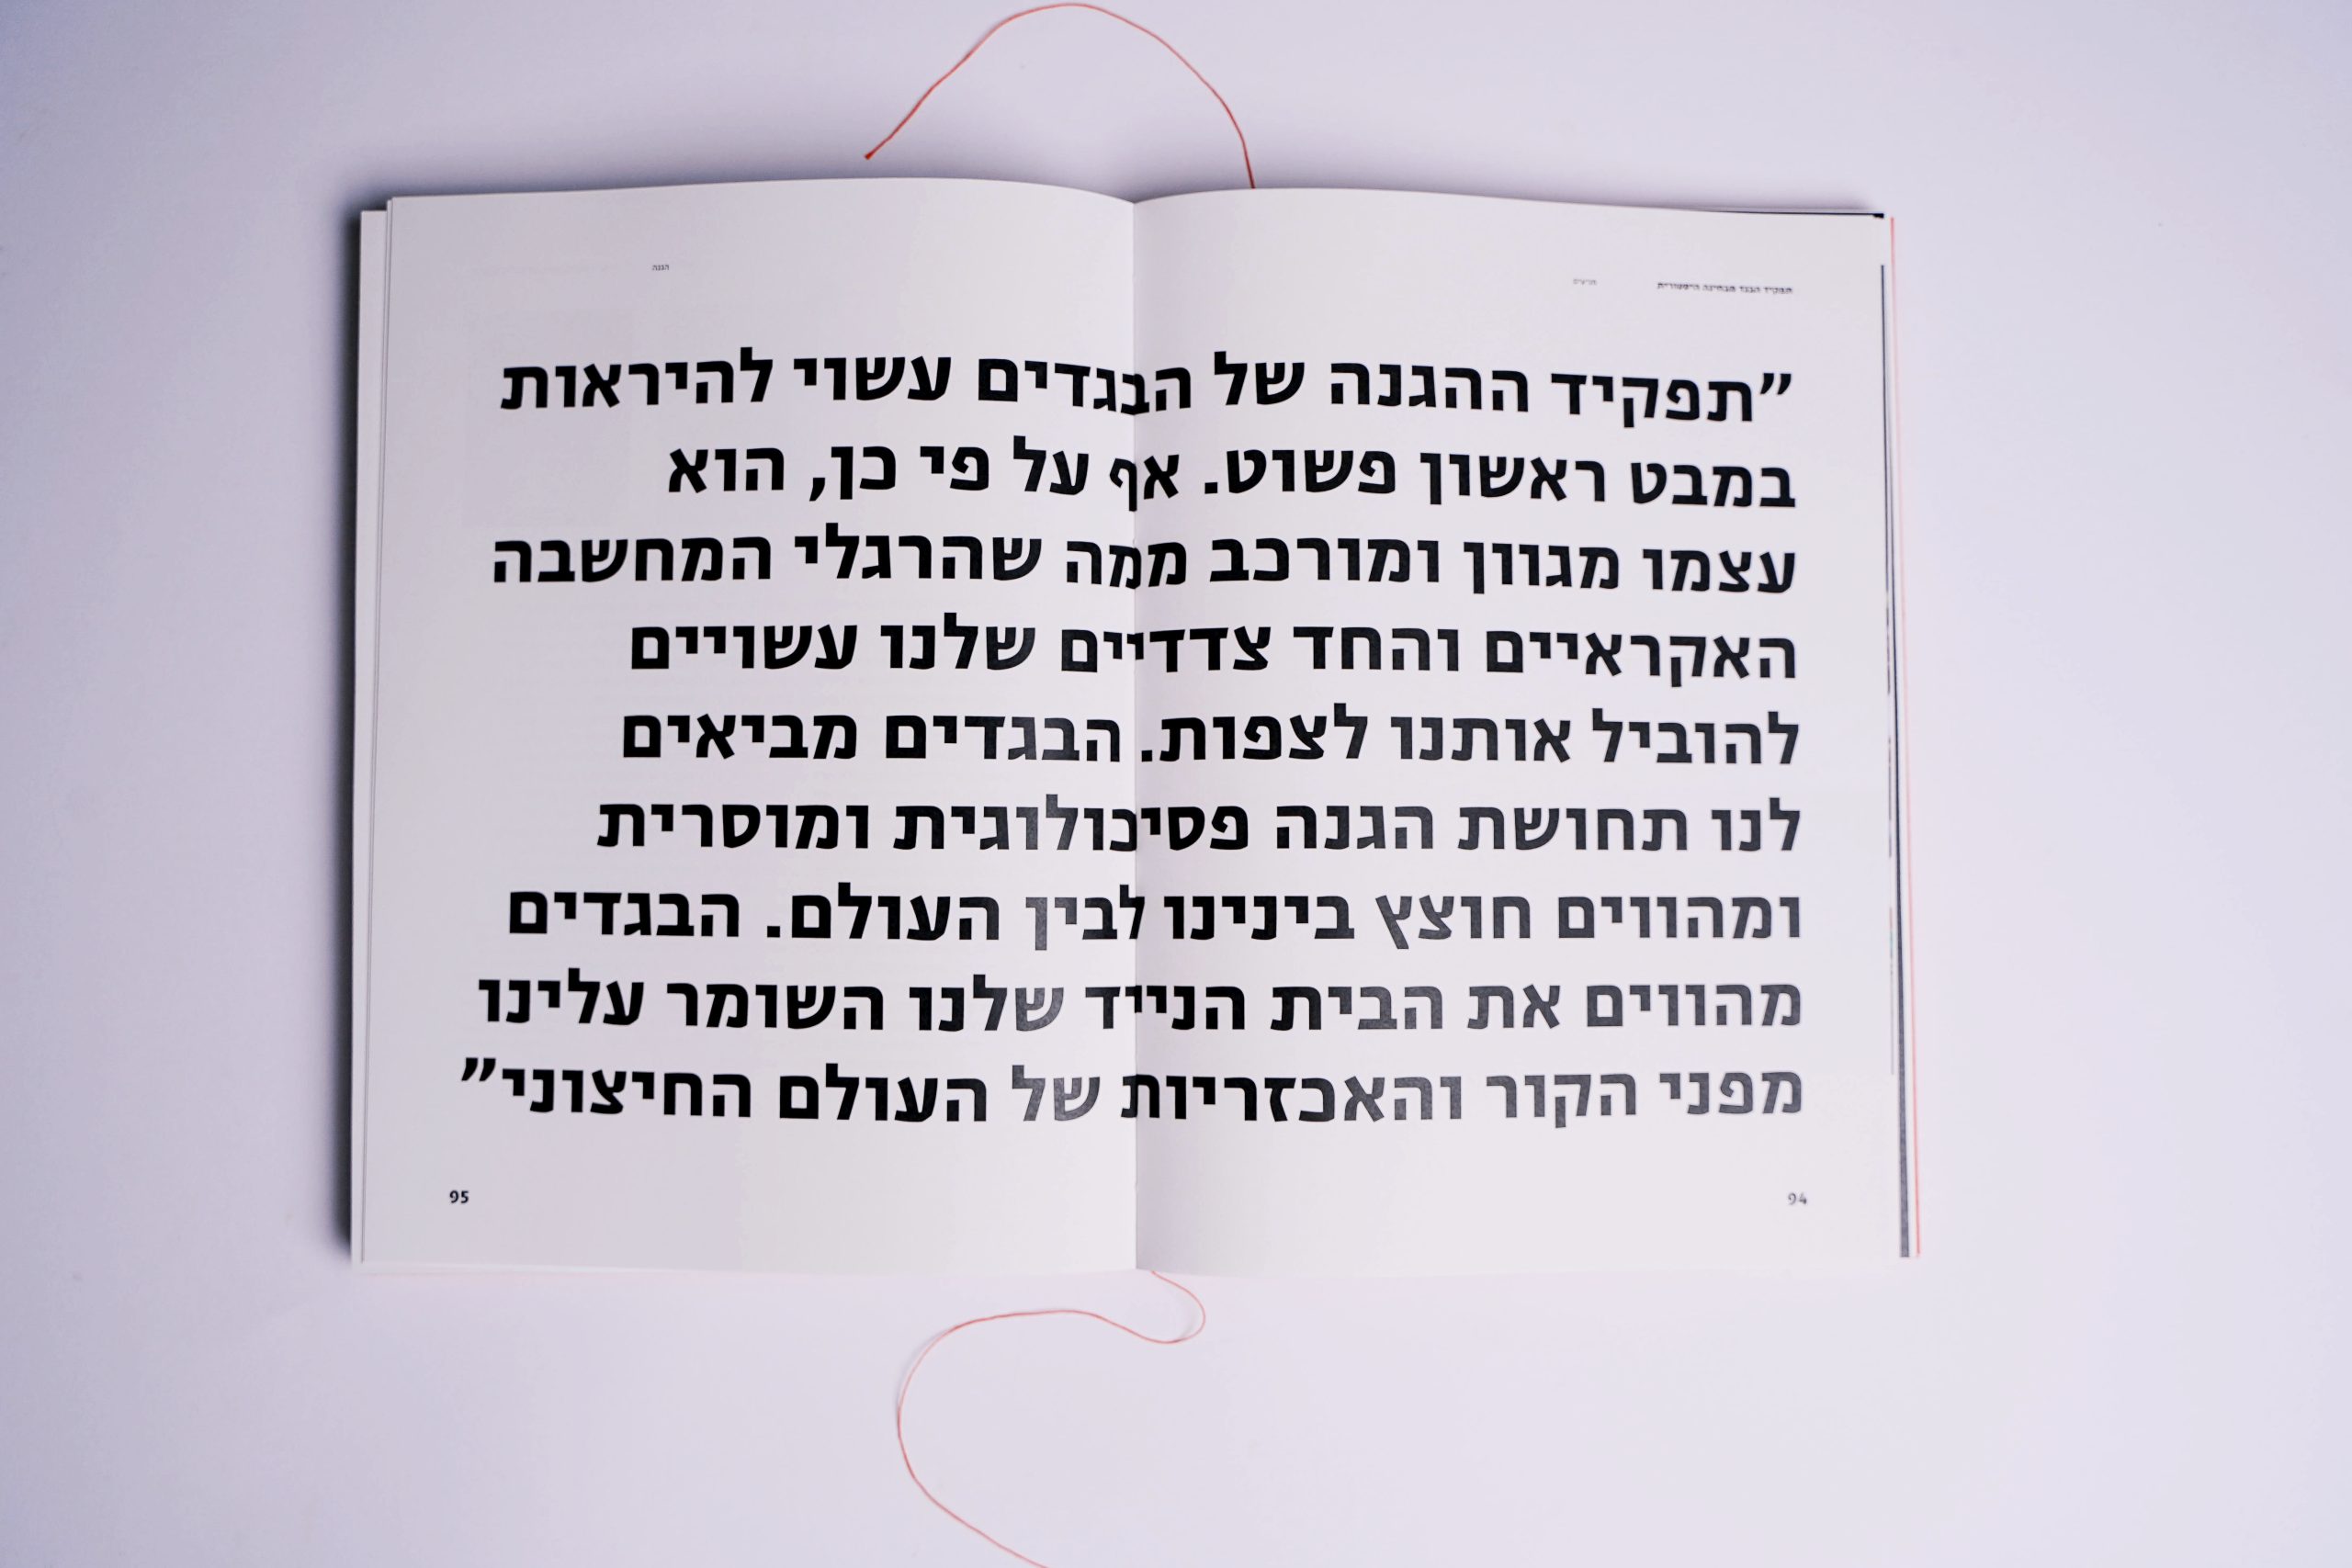 תפקיד הבגד מבחינה היסטורית
הגנה
”תפקיד ההגנה של הבגדים עשוי להיראות
במבט ראשון פשוט. אף על פי כן, הוא
עצמו מגוון ומורכב ממה שהרגלי המחשבה
האקראיים והחד צדדיים שלנו עשויים
להוביל אותנו לצפות. הבגדים מביאים
לנו תחושת הגנה פסיכולוגית ומוסרית
ומהווים חוצץ בינינו לבין העולם. הבגדים
מהווים את הבית הנייד שלנו השומר עלינו
מפני הקור והאכזריות של העולם החיצוני”
94
95